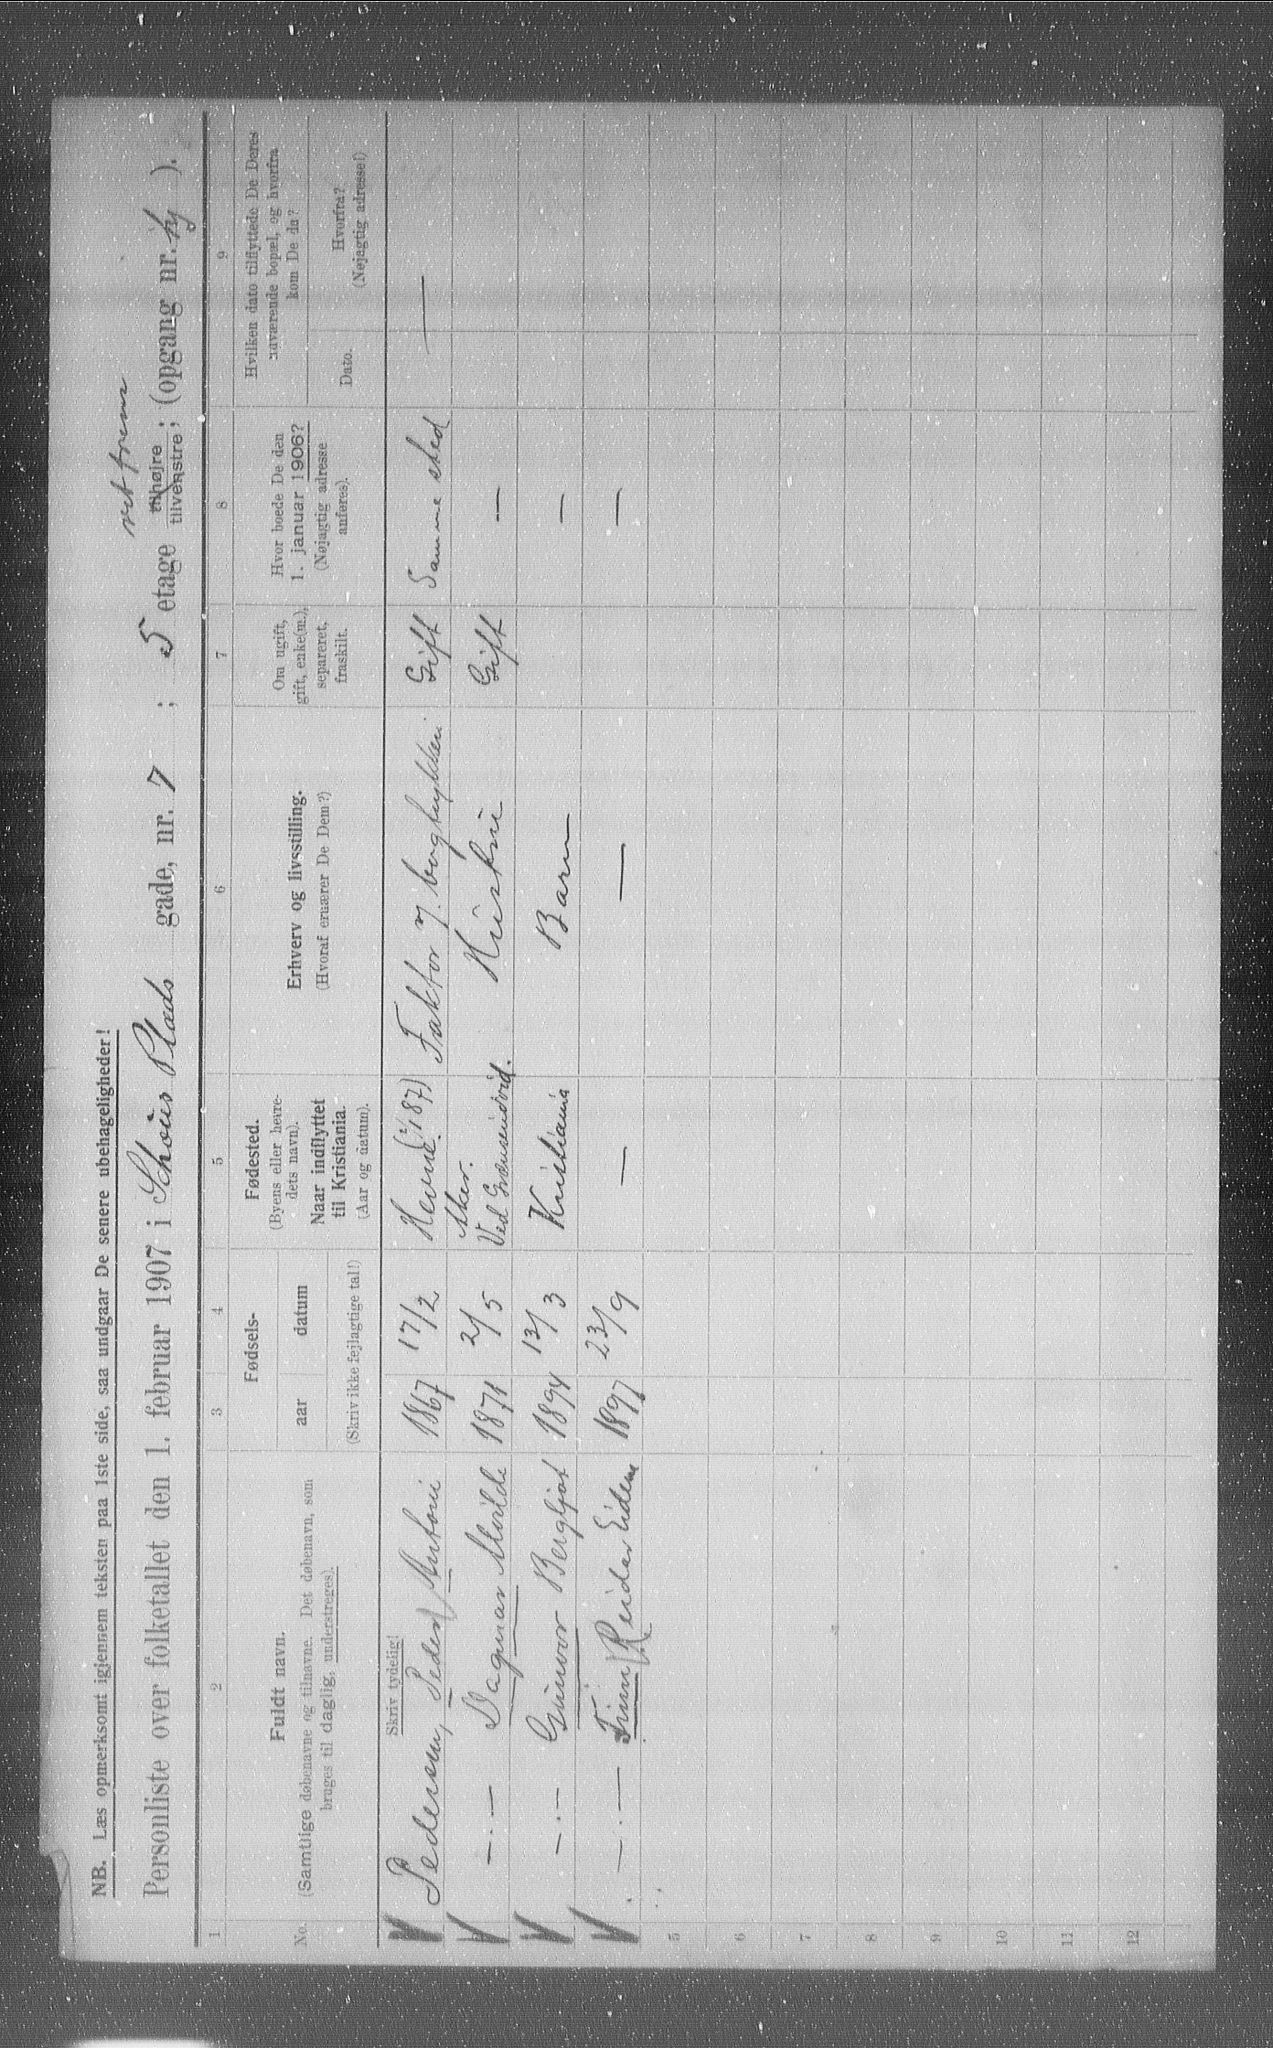 NB. Læs opmerksomt igjennem teksten paa 1ste side, saa undgaar De senere ubehageligheder!
ret frem
Personliste over folketallet den 1. februar 1907 i Schous Plads gade, nr. 7 ; 5 etage tilhøjre tilvenstre ; (opgang nr. ).
1 2 3 4 5 6 7 8 9
No.
Fuldt navn.
(Samtlige døbenavne og tilnavne. Det døbenavn, som
bruges til daglig, understreges).
Skriv tydelig!
Fødsels-
aar datum
(Skriv ikke fejlagtige tal!)
Fødested.
(Byens eller herre-
dets navn).
Naar indflyttet
til Kristiania.
(Aar og datum).
Erhverv og livsstilling.
(Hvoraf ernærer De Dem?)
Om ugift,
gift, enke(m.),
separeret,
fraskilt.
Hvor boede De den
1. januar 1906?
(Nøjagtig adresse
anføres).
Hvilken dato tilflyttede De Deres
nuværende bopæl, og hvorfra
kom De da?
Dato.
Hvorfra?
(Nøjagtig adresse!)
Pedersen, Peder Antoni 1867 17/2 Hevne. Faktor v. Gift Samme sted —
— . — Dagmar 1871 2/5 Aker. Ved Hustru Gift —
— . — Gunvor Bergljot 1894 13/3 Kristiania Barn —
— . — Finn Reidar Eidem 1897 23/9 — — —
5
6
7
8
9
10
11
12